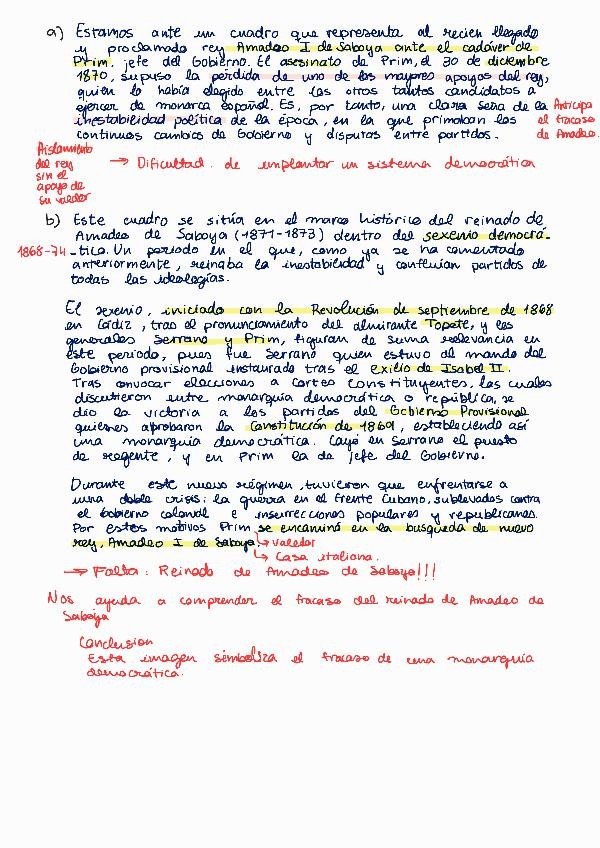 a) Estamos ante un cuadro que representa al recien llegado
y proclamado rey Amadeo I de Saboya ante el cadáver de
Prim, jefe del Gobierno. El asesinato de Prim, el 30 de diciembre
1870, supuso la pérdida de uno de los mayores apoyos del rey,
quien lo había elegido entre los otros tantos candidatos a
ejercer de monarca español. Es, por tanto, una clara seña de la
inestabilidad política de la época, en la que primaban los
continuos cambios de Gobierno y disputas entre partidos.
Anticipa
el fracaso
de Amadeo.
Aislamiento
del rey
sin el
apoyo de
su valedor
→ Dificultad de implantar un sistema democrática
b) Este cuadro se sitúa en el marco histórico del reinado de
Amadeo de Saboya (1871-1873) dentro del sexenio democrá-
1868-74
tico. Un periodo en el que, como ya se ha comentado
anteriormente, reinaba la inestabilidad y confluían partidos de
todas las ideologías.
El sexenio, iniciado con la Revolución de septiembre de 1868
en Cádiz, tras el pronunciamiento del almirante Topete, y los
generales Serrano y Prim, figuran de suma relevancia en
este periodo, pues fue Serrano quien estuvo al mando del
Gobierno provisional instaurado tras el exilio de Isabel II.
Tras convocar elecciones a Cortes Constituyentes, las cuales
discutieron entre monarquía democrática o república, se
dio la victoria a los partidos del Gobierno Provisional
quienes aprobaron la Constitución de 1869, estableciendo así
una monarquía democrática. Cayó en Serrano el puesto
de regente, y en Prim la de jefe del Gobierno.
Durante este nuevo régimen, tuvieron que enfrentarse a
una doble crisis: la guerra en el frente Cubano, sublevados contra
el Gobierno colonial e insurrecciones populares y republicanas.
Por estos motivos Prim se encaminó en la busqueda de nuevo
rey, Amadeo I de Saboya.
→ valedor
→ Casa italiana.
→ Falta: Reinado de Amadeo de Saboya!!!
Nos ayuda a comprender el fracaso del reinado de Amadeo de
Saboya
Conclusion
Esta imagen simboliza el fracaso de una monarquía
democrática.